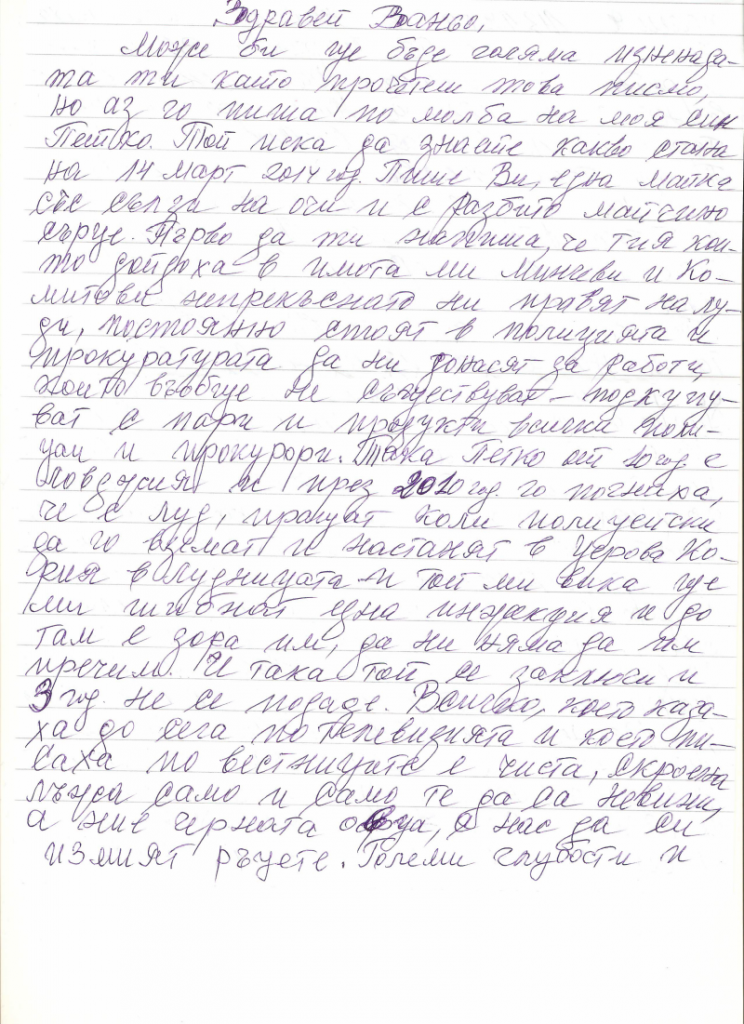 Здравей Ваньо,
Може би ще бъде голяма изненада-
та ти който прочетеш това писмо,
но аз го пиша по молба на моя син
Петко. Той иска да знаете какво стана
на 14 март 2014 год. Пише Ви, една майка
със сълзи на очи и с разбито майчино
сърце. Първо да ти напиша, че тия кои-
то дойдоха в имота ми Миневи и Ко-
митови непрекъснато ни правят на лу-
ди, постоянно стоят в полицията и
прокуратурата да ни донасят за работи,
които въобще не съществуват - подкупу-
ват с пари и продукти всички поли-
цаи и прокурори. Така Петко от 10 год. е
ловджия и през 2010 год. го почнаха,
че е луд, пращат коли полицейски
да го вземат и настанят в Церова Ко-
рия в лудницата и той ми вика ще
ми бибнат една инжекция и до
там е зора им, да ни няма да им
пречим. И така той се заключи и
3 год. не се подаде. Всичко, което каза-
ха до сега по телевизията и което пи-
саха по вестниците е чиста, скроена
лъжа само и само те да са невинни,
а ние черната овца, с нас да си
измият ръцете. Големи глупости и